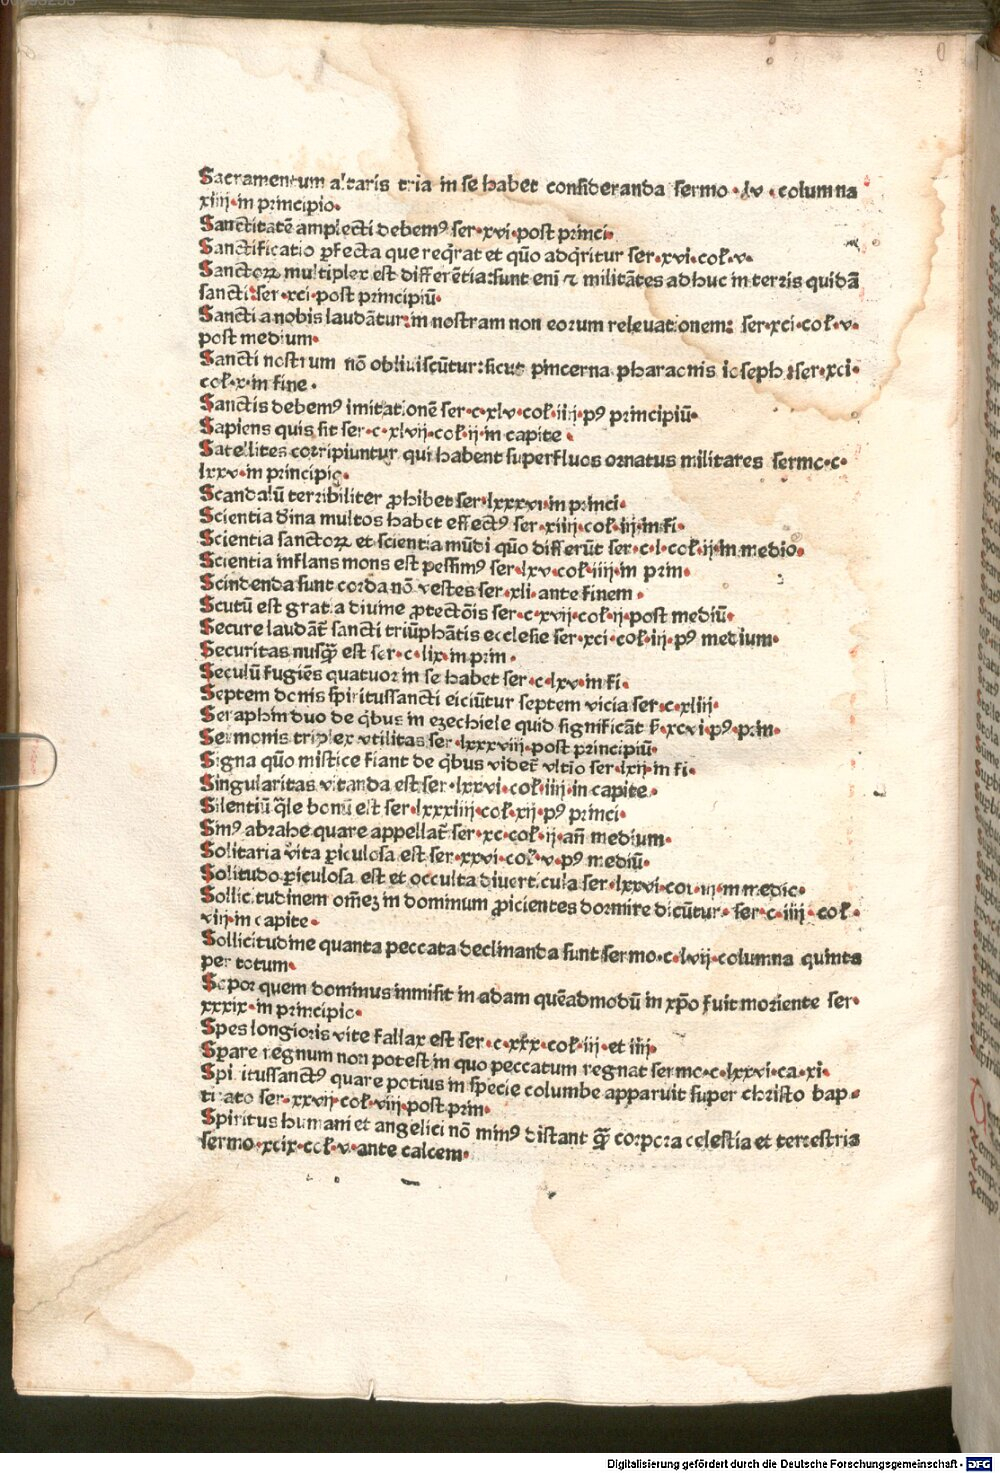 Sacramentum altaris tria in se habet consideranda sermo .lv. columna
xiiii. in principio.
Sanctitatē amplecti debemꝰ ser. xvi. post princi.
Sanctificatio ꝑfecta que reqͥrat et quō adqͥritur ser. xvi. col̄. v.
Sanctoꝝ multiplex est differētia: sunt eni ⁊ militātes adhuc in terris quidā
sancti: ser. xci. post principiū.
Sancti a nobis laudātur: in nostram non eorum releuationem: ser. xci. col̄. v.
post medium.
Sancti nostrum nō obliuiscūtur: sicut pincerna pharaonis ioseph: ser. xci.
col̄. x. in fine.
Sanctis debemꝰ imitationē ser. c. xlv. col̄. iiij. pꝰ principiū.
Sapiens quis sit ser. c. xlvij. col̄. ij. in capite.
Satellites corripiuntur qui habent superfluos ornatus militares sermo. c.
lxxv. in principio.
Scandalū terribiliter ꝓhibet ser. lxxxvi. in princi.
Scientia dina multos habet effectꝰ ser. xiiij. col̄. iij. in fi.
Scientia sanctoꝝ et scientia mūdi quō differūt ser. c. l. col̄. ij. in medio.
Scientia inflans mons est pessimꝰ ser. lxv. col̄. iiij. in prin.
Scindenda sunt corda nō vestes ser. xli. ante finem.
Scutū est gratia diuine ꝓtectōis ser. c. xvij. col̄. ij. post mediū.
Secure laudāt̄ sancti triūphātis ecclesie ser. xci. col̄. iij. pꝰ medium.
Securitas nusꝙ̄ est ser. c. lix. in prin.
Seculū fugiēs quatuor in se habet ser. c. lxv. in fi.
Septem donis spiritussancti eiciūtur septem vicia ser. c. xliij.
Seraphin duo de qͥbus in ezechiele quid significāt s̄. xcvi. pꝰ prin.
Sermonis triplex vtilitas ser. lxxxviij. post principiū.
Signa quō mistice fiant de qͥbus videt̄ vltio ser. lxij. in fi.
Singularitas vitanda est ser. lxxvi. col̄. iiij. in capite.
Silentiū qͣle bonū est ser. lxxxiiij. col̄. xij. pꝰ princi.
Sinꝰ abrahe quare appellat̄ ser. xc. col̄. ij. an̄ medium.
Solitaria vita ꝑiculosa est ser. xxvi. col̄. v. pꝰ mediū.
Solitudo ꝑiculosa est et occulta diuerticula ser. lxxvi. col. iij. in medio.
Sollicitudinem om̄ez in dominum ꝓicientes dormire dicūtur. ser. c. iiij. col̄.
viij. in capite.
Sollicitudine quanta peccata declinanda sunt sermo. c. lvij. columna quinta
per totum.
Sopor quem dominus inmisit in adam quēadmodū in xp̄o fuit moriente ser.
xxxix. in principio.
Spes longioris vite fallax est ser. c. xxx. col̄. iij. et iiij.
Sꝑare regnum non potest in quo peccatum regnat sermo. c. lxxvi. ca. xi.
Spiritussanctꝰ quare potius in specie columbe apparuit super christo bap.
tizato ser. xxvij. col̄. viij. post prin.
Spiritus humani et angelici nō minꝰ distant ꝙ̄ corpora celestia et terrestria
sermo. xcix. col̄. v. ante calcem.
Digitalisierung gefördert durch die Deutsche Forschungsgemeinschaft - DFG